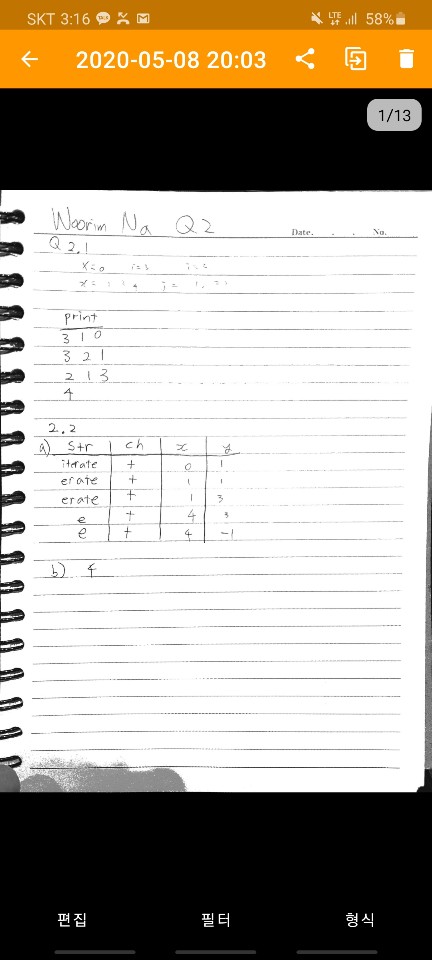 SKT 3:16 LTE 58%
2020-05-08 20:03
1/13
Woorim Na Q2
Date. . . No.
Q 2.1
x=0 i=3
print
3 1 0
3 2 1
2 1 3
4
2.2
a) Str ch x y
iterate t 0 1
erate t 1 1
erate t 1 3
e t 4 3
e t 4 -1
b) 4
편집 필터 형식